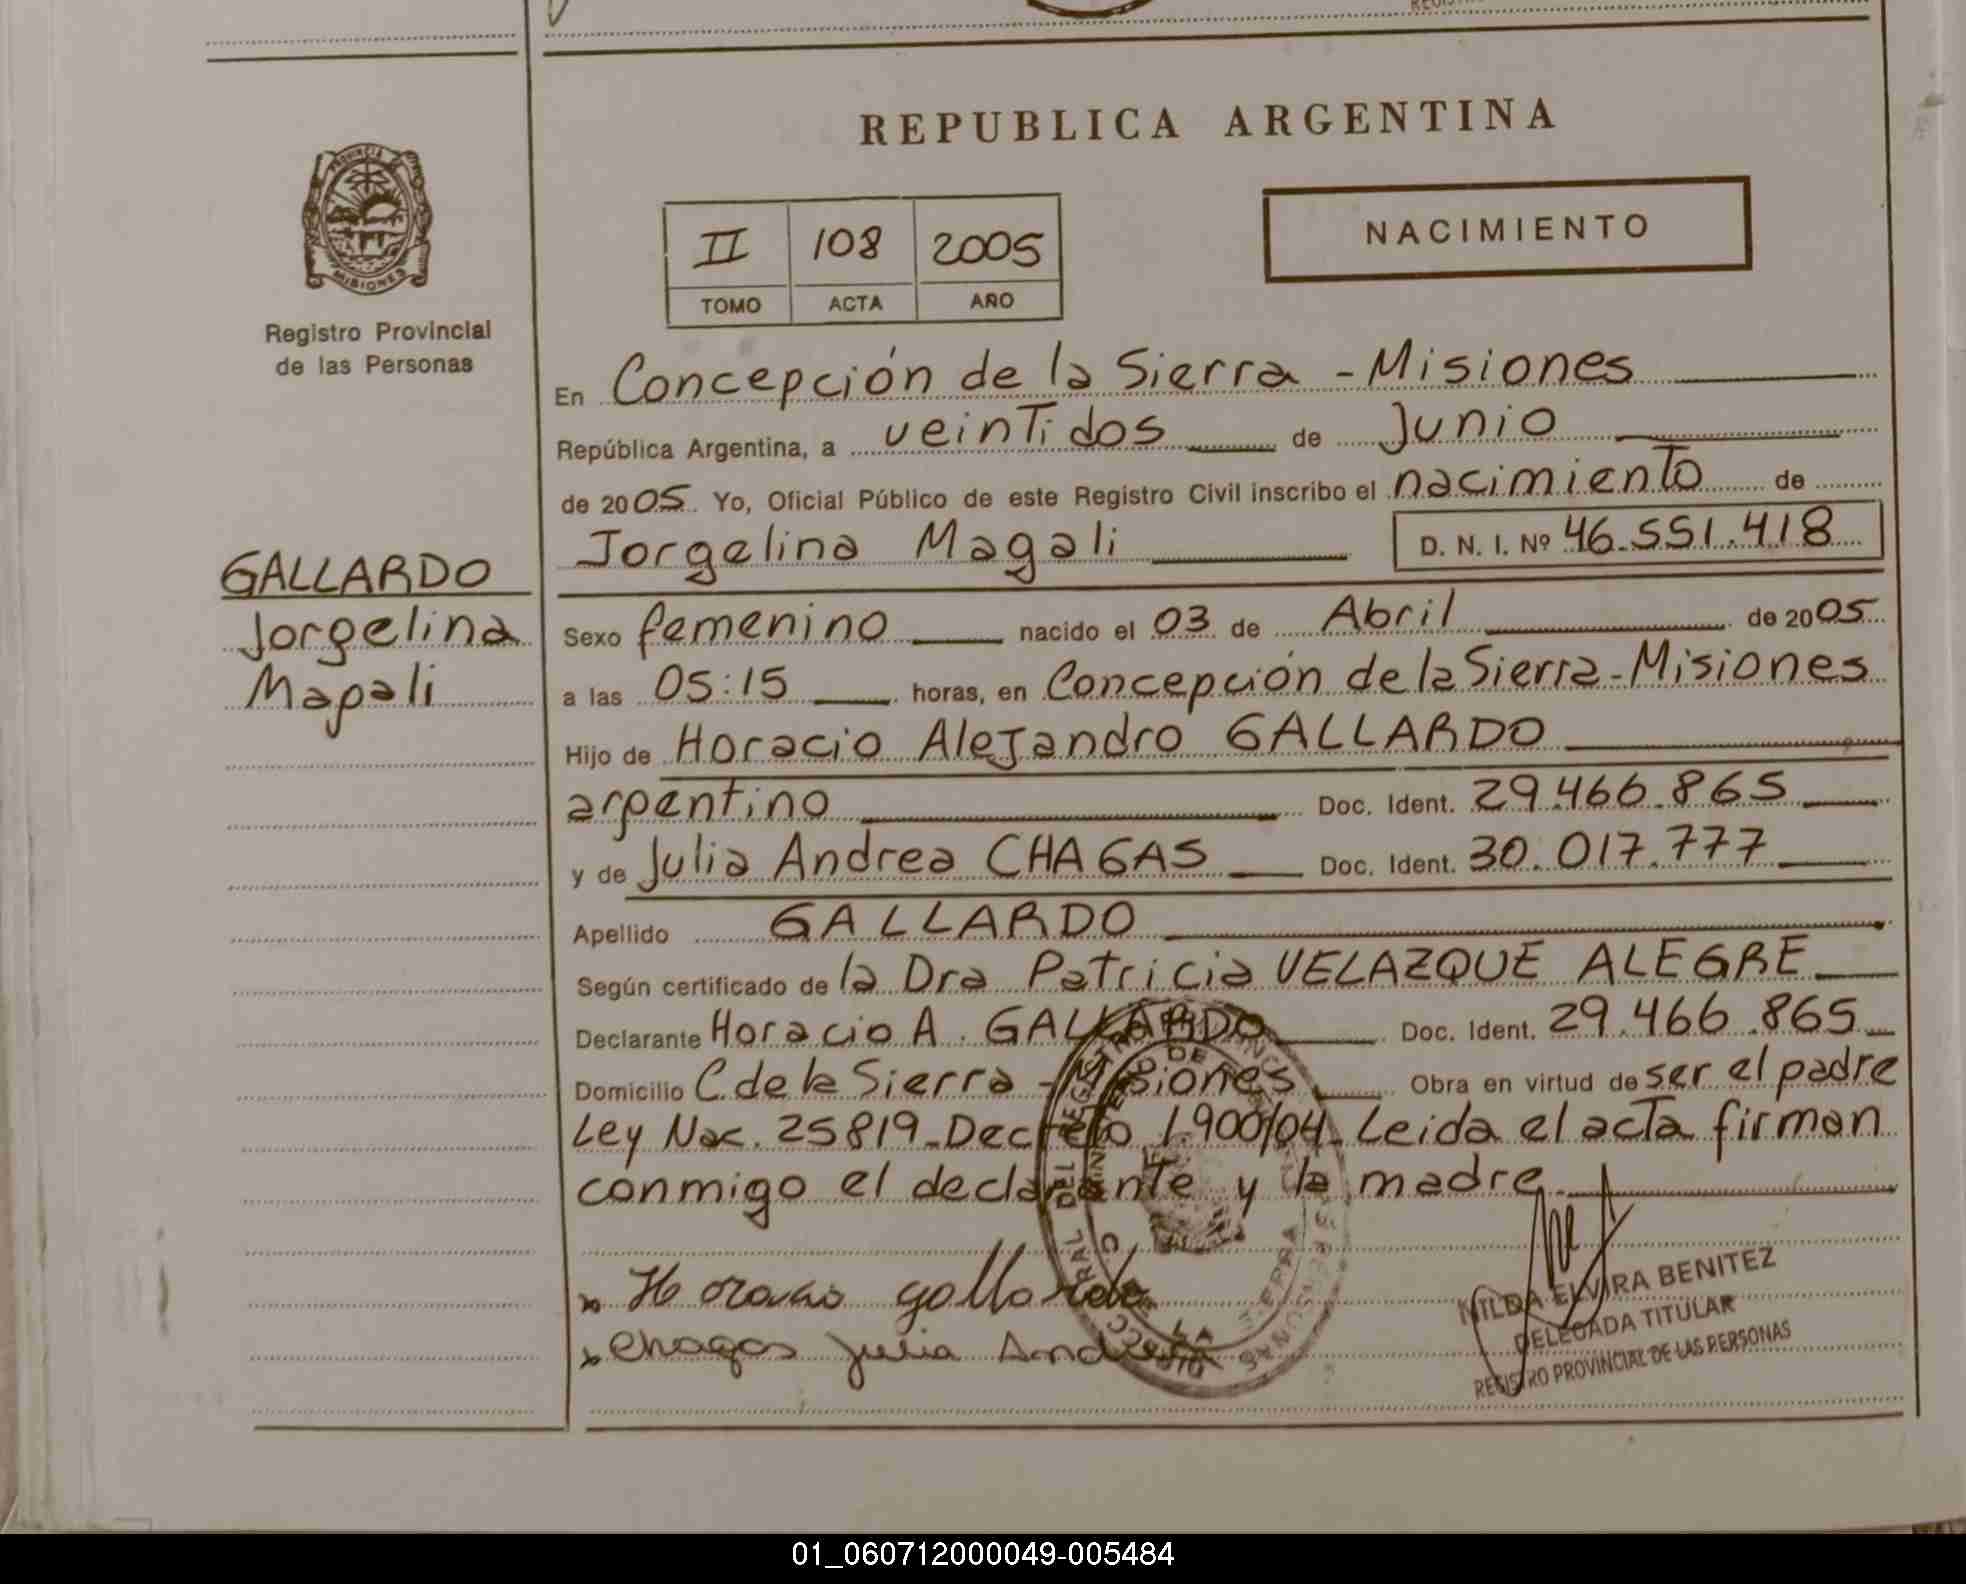 REPUBLICA ARGENTINA
PROVINCIA DE
MISIONES
Registro Provincial
de las Personas
II 108 2005
TOMO ACTA AÑO
NACIMIENTO
En Concepción de la Sierra - Misiones
República Argentina, a veintidos de Junio
de 2005. Yo, Oficial Público de este Registro Civil inscribo el nacimiento de
Jorgelina Magali D. N. I. Nº 46.551.418
GALLARDO
Jorgelina
Magali
Sexo femenino nacido el 03 de Abril de 2005
a las 05:15 horas, en Concepción de la Sierra - Misiones
Hijo de Horacio Alejandro GALLARDO
argentino Doc. Ident. 29.466.865
y de Julia Andrea CHAGAS Doc. Ident. 30.017.777
Apellido GALLARDO
Según certificado de la Dra Patricia VELAZQUE ALEGRE
Declarante Horacio A. GALLARDO Doc. Ident. 29.466.865
Domicilio C. de la Sierra - Misiones Obra en virtud de ser el padre
Ley Nac. 25819 - Decreto 1.900/04 - Leida el acta firman
conmigo el declarante y la madre
x Horacio gallardo
x Chagas Julia Andrea
NILDA ELVIRA BENITEZ
DELEGADA TITULAR
REGISTRO PROVINCIAL DE LAS PERSONAS
01_060712000049-005484